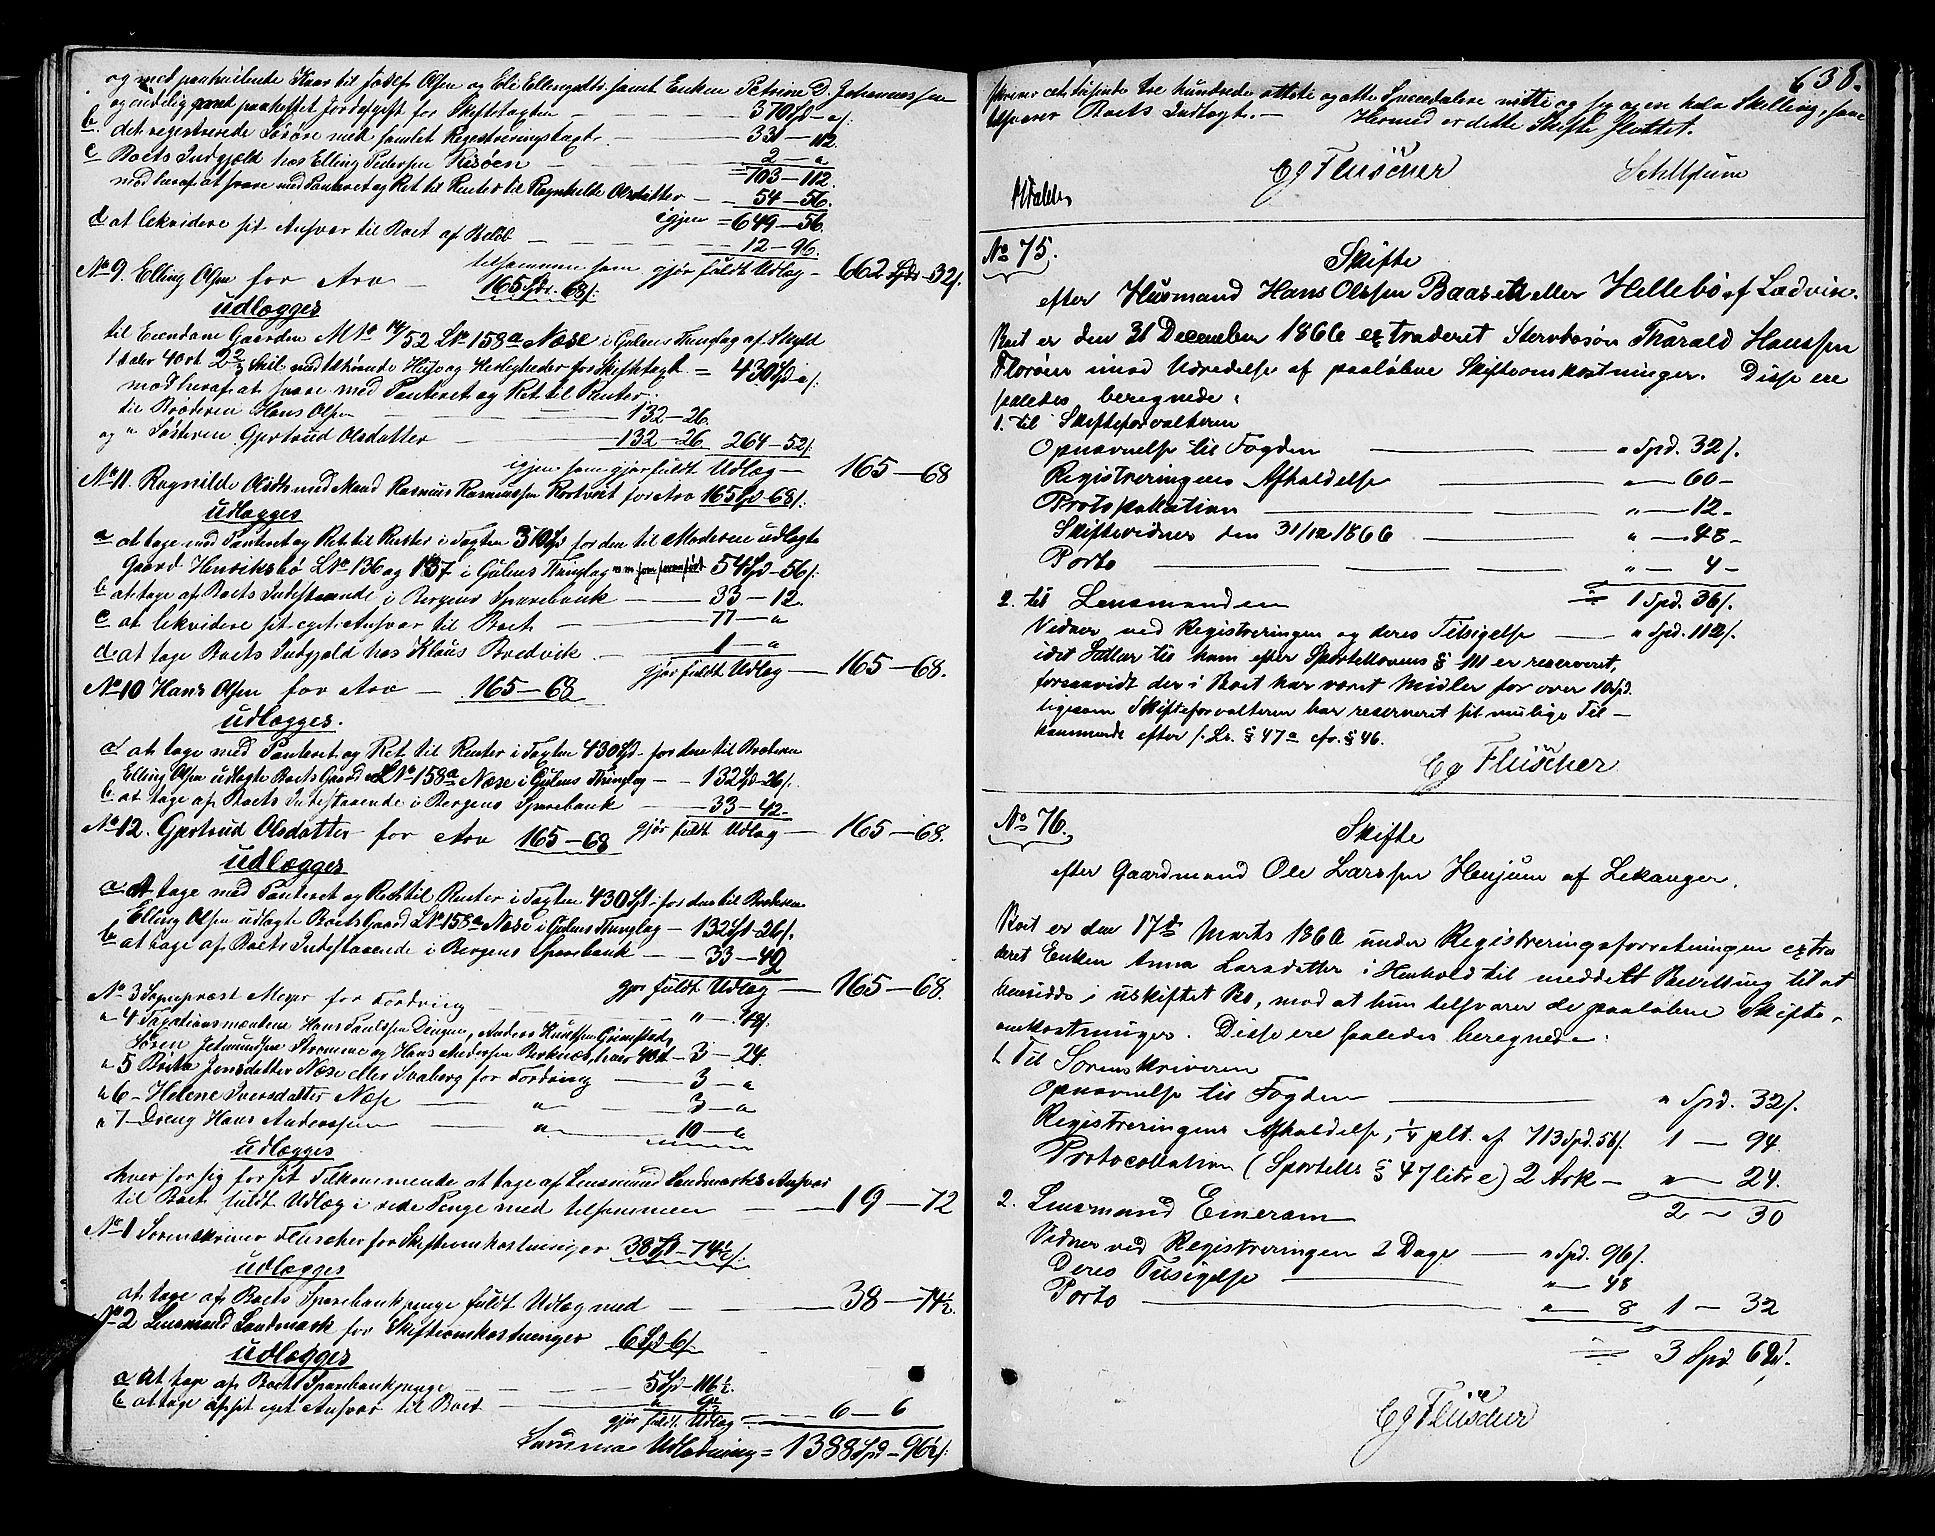 og med paahvilende Kaar til Josef Olsen og Eli Ellingsdtr. samt Enken Petrine D. Johannessen
og endelig med paaheftet Jordafgift for Skiftetagten — 370 Spd — " s.
b. det registrerede Løsøre med samlet Registreringstagt — 331 — 112.
c Boets Indgjæld hos Elling Pedersen Risøen — 2 — "
= 703 — 112
med heraf at svare med Panteret og Ret til Renter til Ragnhilde Olsdatter — 54 — 56.
igjen = 649 — 56.
d at likvidere sit Ansvar til Boet af Beløb — 12 — 96.
tilsammen som gjør fuldt Udlæg — 662 Spd — 32 s.
No 9. Elling Olsen for Arv — 165 Spd. 68 s.
udlægges
til Eiendom Gaarden M No 14/52 L No 158a Næse i Gulens Thinglag af Skyld
1 daler 4 ort 2 2/3 Skil med tilhørende Huse og Herligheder for Skiftetagt = 430 Spd " s.
mod heraf at svare med Panteret og Ret til Renter:
til Broderen Hans Olsen — 132 — 26.
og " Søsteren Gjertrud Olsdatter — 132 — 26 264 — 52 s.
igjen som gjør fuldt Udlæg — 165 — 68
No 11. Ragnilde Olsdtr med Mand Rasmus Rasmussen Kortvet for Arv 165 Spd — 68 s.
udlægges
a at tage med Panteret og Ret til Renter i Tagten 370 Spd for den til Moderen udlagte
Gaard Henriksbø L No 136 og 137 i Gulens Thinglag — 54 Spd — 56 s.
b at tage af Boets Indestaaende i Bergens Sparebank — 33 — 12.
c at likvidere sit eget Ansvar til Boet — 77 — "
d at tage Boets Indgjæld hos Klaus Bredvik — 1 — "
gjør fuldt Udlæg — 165 — 68.
No 10 Hans Olsen for Arv — 165 — 68
udlægges.
a at tage med Panteret og Ret til Renter i Tagten 430 Spd. for den til Broderen
Elling Olsen udlagte Boets Gaard L No 158a Næse i Gulens Thinglag — 132 Spd — 26 s.
b at tage af Boets Indestaaende i Bergens Sparebank — 33 — 42.
gjør fuldt Udlæg — 165 — 68.
No 12. Gjertrud Olsdatter for Arv 165 — 68
udlægges
a At tage med Panteret og Ret til Renter i Tagten 430 Spd. for den til Broderen
Elling Olsen udlagte Boets Gaard L No 158a Næse i Gulens Thinglag — 132 Spd — 26 s.
b at tage af Boets Indestaaende i Bergens Sparebank — 33 — 42
gjør fuldt Udlæg — 165 — 68.
No 3 Sognepræst Meyer for Fordring — " — 48 s.
" 4 Taxationsmændene Hans Paulssen Dingen, Anders Knutsen Grimstad,
Søren Jetmundsen Strømme og Hans Andersen Birknæs, hver — 3 — 24.
" 5 Brita Jensdatter Næse eller Svaberg for Fordring — 3 — "
" 6 — Helene Iversdatter Næse — " — 3 — "
" 7 — Dreng Hans Anderssen — " — 10 — "
udlægges
hver for sig for sit Tilkommende at tage af Lensmand Landmarks Ansvar
til Boet fuldt Udlæg i rede Penge med tilsammen — 19 — 72
No 1 Sorenskriver Fleischer for Skifteomkostninger 38 Spd — 74 1/2 s.
udlægges
at tage af Boets Sparebankpenge fuldt Udlæg med — 38 — 74 1/2.
No 2 Lensmand Landmark for Skifteomkostninger 6 Spd 6 s.
udlægges
a At tage af Boets Sparebankpenge — 5 Spd — 116 1/2.
b at tage af sit eget Ansvar til Boet — " 9 1/2
gjør fuldt Udlæg — 6 — 6
Summa Udlodning = 1388 Spd — 96 1/2 s.
638.
skriver eet tusinde tre hundrede otteti og otte Speciedaler nitti og sex og en halv Skilling, som
udgjør Boets Indtægt. — Hermed er dette Skifte sluttet.
Cg Fleischer
No 75.
Skifte
efter Husmand Hans Olssen Baasetn eller Hellebø af Ladvik.
Boet er den 31 December 1866 extraderet Stervbosøn Tharald Hanssen
Florøen imod Udredelse af paaløbne Skifteomkostninger. Disse ere
saaledes beregnede:
1. til Skifteforvalteren
Opnævnelse til Fogden — " Spd. 32 s.
Registreringens Afholdelse — " — 60 —
Protokollation — " — 12 —
Skiftevidner den 31/12 1866 — " — 48 —
Porto — " — 4 —
1 Spd. 36 s.
2. til Lensmanden
Vidner ved Registreringen og deres Tilsigelse — " Spd. 112 s.
idet Sallær til ham efter Sportellovens § 111 er reserveret,
forsaavidt der i Boet har været Midler for over 10 Spd.
ligesom Skifteforvalteren har reserveret sit mulige Til-
kommende efter s. Lv. § 47a cfr. § 46.
Cg Fleischer
No 76.
Skifte
efter Gaardmand Ole Larssen Henjum af Lekanger.
Boet er den 17de Marts 1860 under Registreringsforretningen extra
deret Enken Anna Larsdatter i Henhold til meddelt Bevilling til at
hensidde i uskiftet Bo, mod at hun tilsvarer de paaløbne Skifte-
omkostninger. Disse ere saaledes beregnede:
1. Til Sorenskriveren
Opnævnelse til Fogden — " Spd. 32 s.
Registreringens Afholdelse, 1/4 pct. af 713 Spd. 56 s. 1 — 94.
Protocollation (Sportell. § 47 litr c) 2 Ark — " — 24.
2 — 30
2. Lensmand Eineram
Vidner ved Registreringen 2 Dage — " Spd. 96 s.
Deres Tilsigelse — " — 48
Porto — " — 8 1 — 32
3 Spd 62 s.
Cg Fleischer